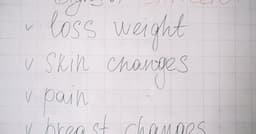 ✓ loss weight
✓ skin changes
✓ pain
✓ breast changes